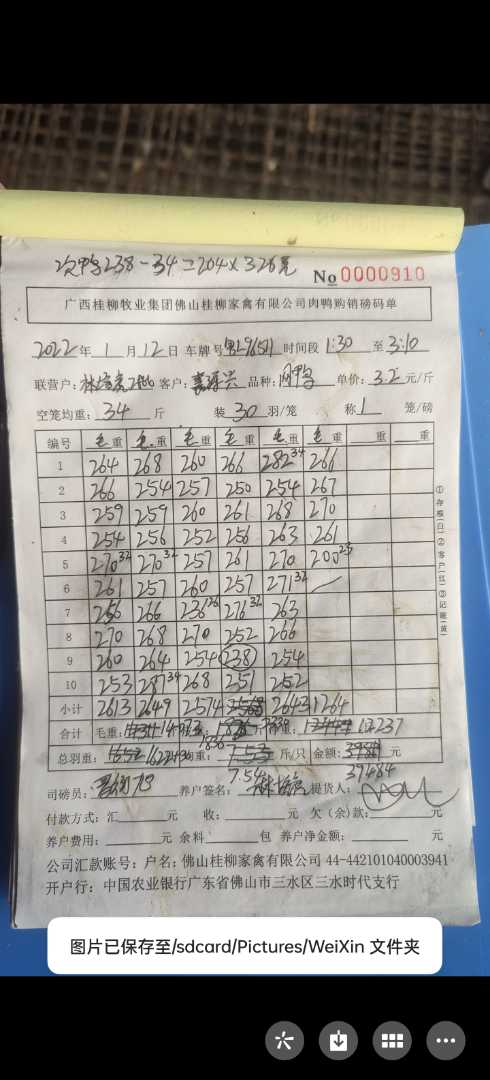 次鸭238-34=204×326元
No 0000910
广西桂柳牧业集团佛山桂柳家禽有限公司肉鸭购销磅码单
2022年 1 月 12 日 车牌号 时间段 1:30 至 3:10
联营户: 客户: 品种: 肉鸭 单价: 3.2 元/斤
空笼均重: 34 斤 装 30 羽/笼 称 1 笼/磅
编号 毛重 毛重 毛重 毛重 毛重 毛重 重 重
1 264 268 260 266 282 34 266
2 266 254 257 250 254 267
3 259 259 260 261 268 270
4 254 256 252 256 263 261
5 270 32 270 32 257 261 270 200 23
6 261 257 260 257 271 32
7 256 266 236 26 276 32 263
8 270 268 270 252 266
9 260 264 254 238 254
10 253 287 34 268 251 252
小计 2613 2649 2574 2643 1264
合计 毛重: 重: 重: 12237
1836
总羽重: 均重: 斤/只 金额: 元
7.54 39484
司磅员: 养户签名: 提货人:
付款方式:汇 元 收: 元 欠(余)款: 元
养户费用: 元 余料 包 养户净金额: 元
公司汇款账号:户名:佛山桂柳家禽有限公司 44-442101040003941
开户行:中国农业银行广东省佛山市三水区三水时代支行
①存根(白)②客户(红)③记账(黄)
图片已保存至/sdcard/Pictures/WeiXin 文件夹